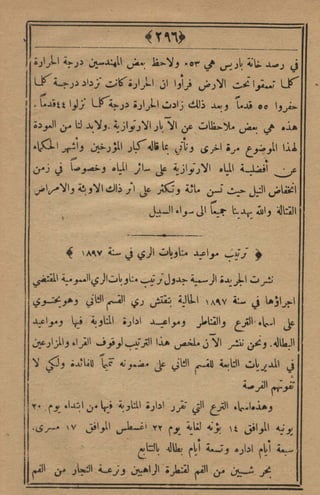 ﴿٢٩٦﴾
في رصد خانة باريس هي ٥٣° ولاحظ بعض المهندسين درجة الحرارة
كلما تعمقوا تحت الارض فرأوا ان الحرارة كانت تزداد درجة كلما
حفروا ٥٥ قدماً وبعد ذلك زادت الحرارة درجة كلما نزلوا ٤٤ قدماً.
هذه هي بعض ملاحظات عن الآبار الارتوازية. ولابد لنا من العودة
لهذا الموضوع مرة اخرى ونأتي بما قاله كبار المؤرخين وأشهر الحكماء
عن أفضلية المياه الارتوازية على سائر المياه وخصوصاً في زمن
انخفاض النيل حيث تسن مائة وتكثر على اثر ذلك الاوبئة والامراض
القتالة والله يهدينا جميعاً الى سواء السبيل
﴿ ترتيب مواعيد مناوبات الري في سنة ١٨٩٧ ﴾
نشرت الجريدة الرسمية جدول ترتيب مناوبات الري العمومية المقتضي
اجراؤها في سنة ١٨٩٧ الحالية بتفتش ري القسم الثاني وهو يحتوي
على اسماء الترع والقناطر ومواعيد ادارة المناوبة فيها ومواعيد
البطاله. ونحن ننشر الآن ملخص هذا الترتيب لوقوف القراء والمزارعين
في المديريات التابعة للقسم الثاني على مضمونه تتميماً للفائدة ولكي لا
تفوتهم الفرصة
وهذه اسماء الترع التي تقرر ادارة المناوبة فيها من ابتداء يوم ٢٠
يونيه الموافق ١٤ بؤنه لغاية يوم ٢٢ اغسطس الموافق ١٧ مسرى.
سبعة أيام اداره وتسعة أيام بطاله بالتتابع
بحر شبين من الفم لقنطرة الراهبين وترعة النجار من الفم